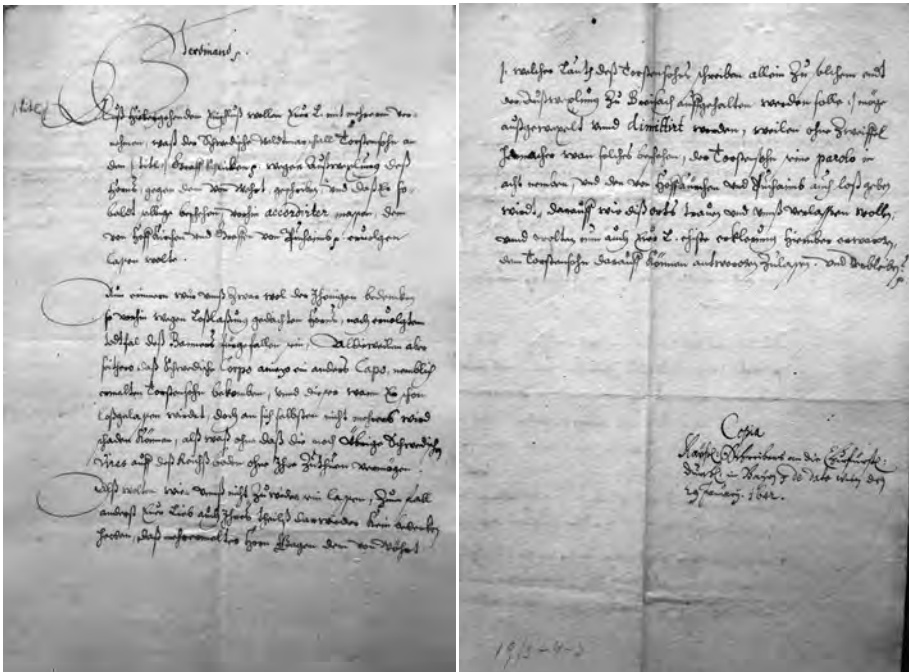 Ferdinand
/ titl: /
Auß hiebeygehenden Einschluß wollen Euer L. mit mehrerm ver-
nehmen, waß der Schwedische Veldtmarschall Torstensohn an
den / titl: / wegen Außwexlung deß
Horns, gegen dem von Wehrt, geschrieben, und daß Er so-
baldt selbige beschehen, vorhin accordirter massen, den
von Hoffkirchen und Graffen von Puchaimb erfolgen
lassen wolte.
Nun erinnern wir unß zwar wol der Jhenigen bedenken
so vorhin wegen Loßlassung gedachten Horns, nach erfolgtem
todtfal deß Banners fürgefallen sein, Aldieweilen aber
seithero daß Schwedische Corpo anyezo ein anders Capo, nemblich
ermelten Torstensohn bekomben, unnd dieser wann Er schon
Loßgelassen wirdet, doch an sich selbsten nicht mehrers wird
schaden können, alß waß ohne daß die noch übrige Schwedische
auff deß Reichß boden ohne Ihne Zuthun vermögen.
Alß wolten wir unß nicht zuwider sein lassen, zum fall
anderst Euer Lieb. auch Ihres theilß darwieder kein bedenken
hetten, daß mehrermelter Horn gegen dem von Wöhrt
/: welcher Lauth deß Torstensohns schreiben allein zu solchem endt
der Außwexlung zu Breisach auffgehalten werden solle :/ möge
außgewexelt unnd dimittirt werden, weilen ohne Zweiffel
hernacher wan solches beschehen, der Torstensohn seine parolo in
acht nemben, und den von Hoffkürchen und Puchaimb auch loß geben
wirdt, darauff wir diß orts trauen und unß verlassen wolln,
unnd wolten nun auch Euer L. ehiste erklerung hierüber erwarten,
dem Torstensohn darauff können antwortten zulassen. Und verbleiben
Copia
Kayserl. Schreibens an die Churfürstl:
Durchl. in Bayrn de dato Wien den
29 January. 1642.